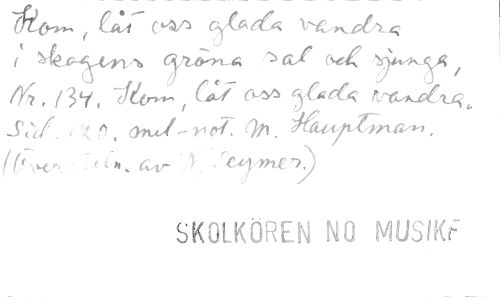 Kom, låt oss glada vandra
i skogens gröna sal och sjunga,
Nr. 134. Kom, låt oss glada vandra.
Sid. 120. mel-not. M. Hauptman.
av Seymer.)
SKOLKÖREN NO MUSIKF